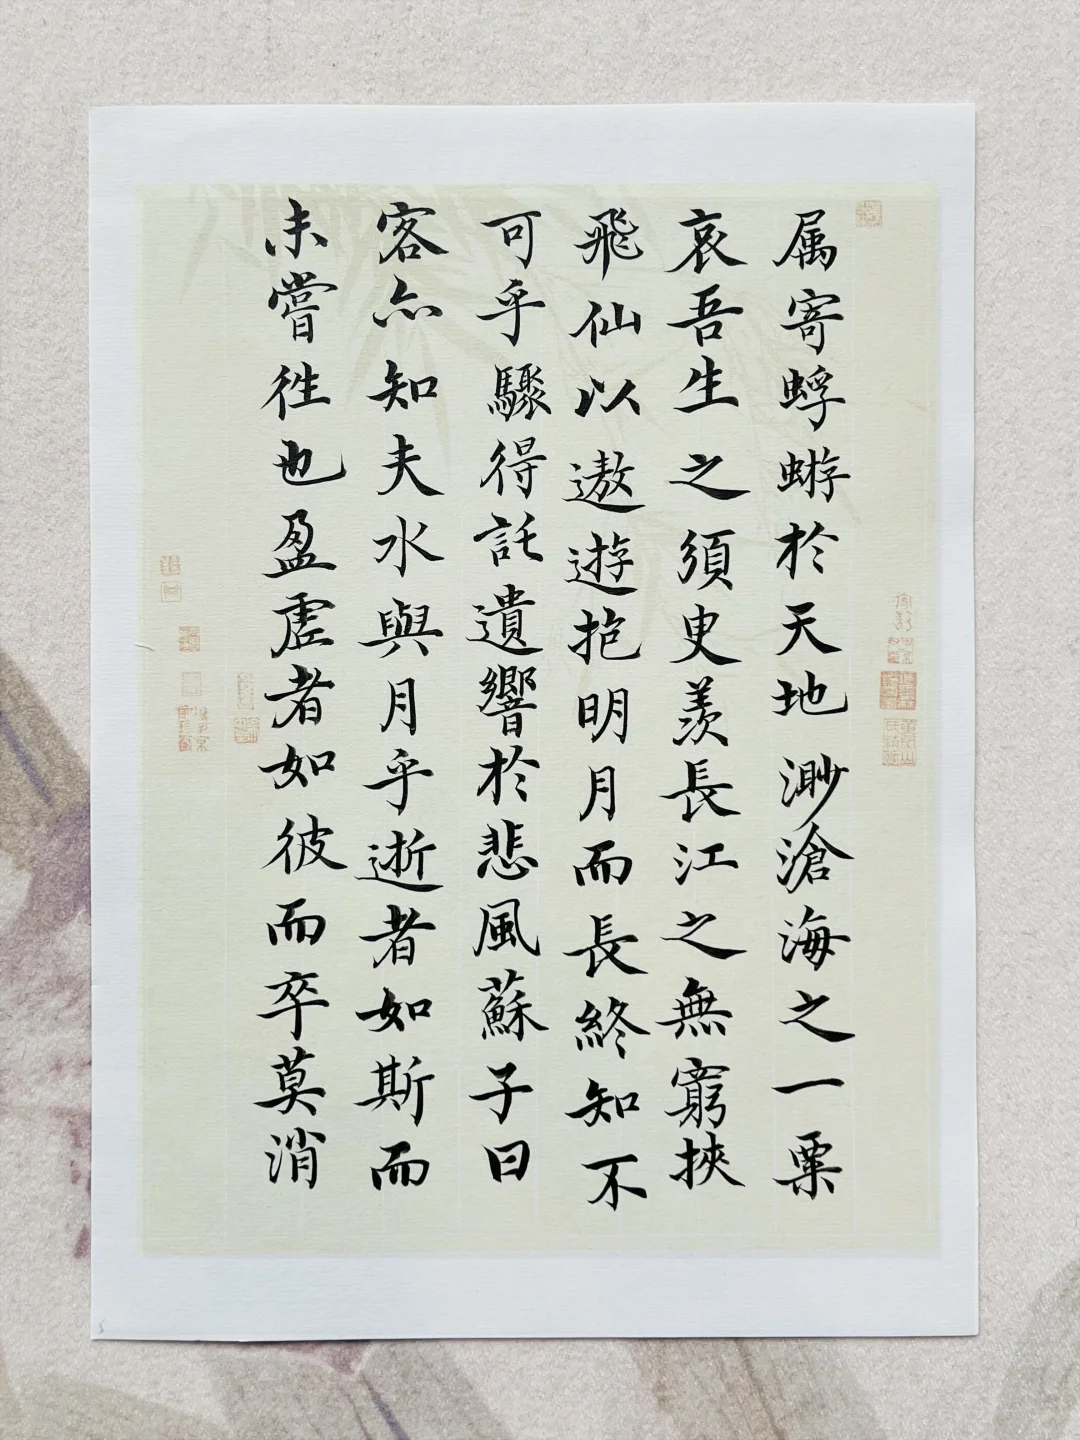 属寄蜉蝣於天地渺滄海之一粟
哀吾生之須臾羨長江之無窮挾
飛仙以遨遊抱明月而長終知不
可乎驟得託遺響於悲風蘇子曰
客亦知夫水與月乎逝者如斯而
未嘗往也盈虛者如彼而卒莫消